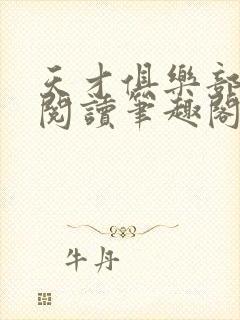 天才俱樂部
閱讀筆趣閣
牛丹